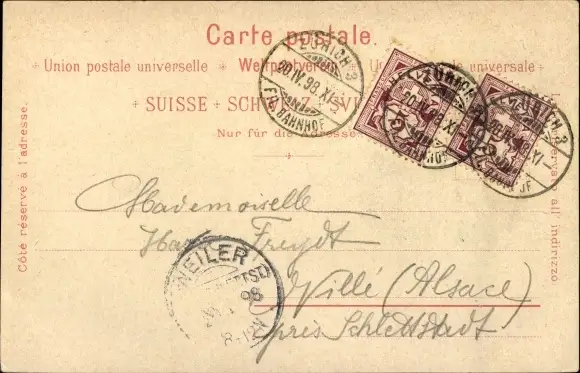 Carte postale.
Union postale universelle Weltpostverein Unione postale universale
SUISSE SCHWEIZ SVIZZERA
Nur für die Adresse.
Côté réservé à l'adresse.
Lato riservato all' indirizzo
ZÜRICH 3
20.IV.98.XI
FIL. BAHNHOF
ZÜRICH 3
20.IV.98.XI
FIL. BAHNHOF
ZÜRICH 3
20.IV.98.XI
FIL. BAHNHOF
5
5
Mademoiselle
Freydt
Villé (Alsace)
près Schlettstadt
WEILER
98